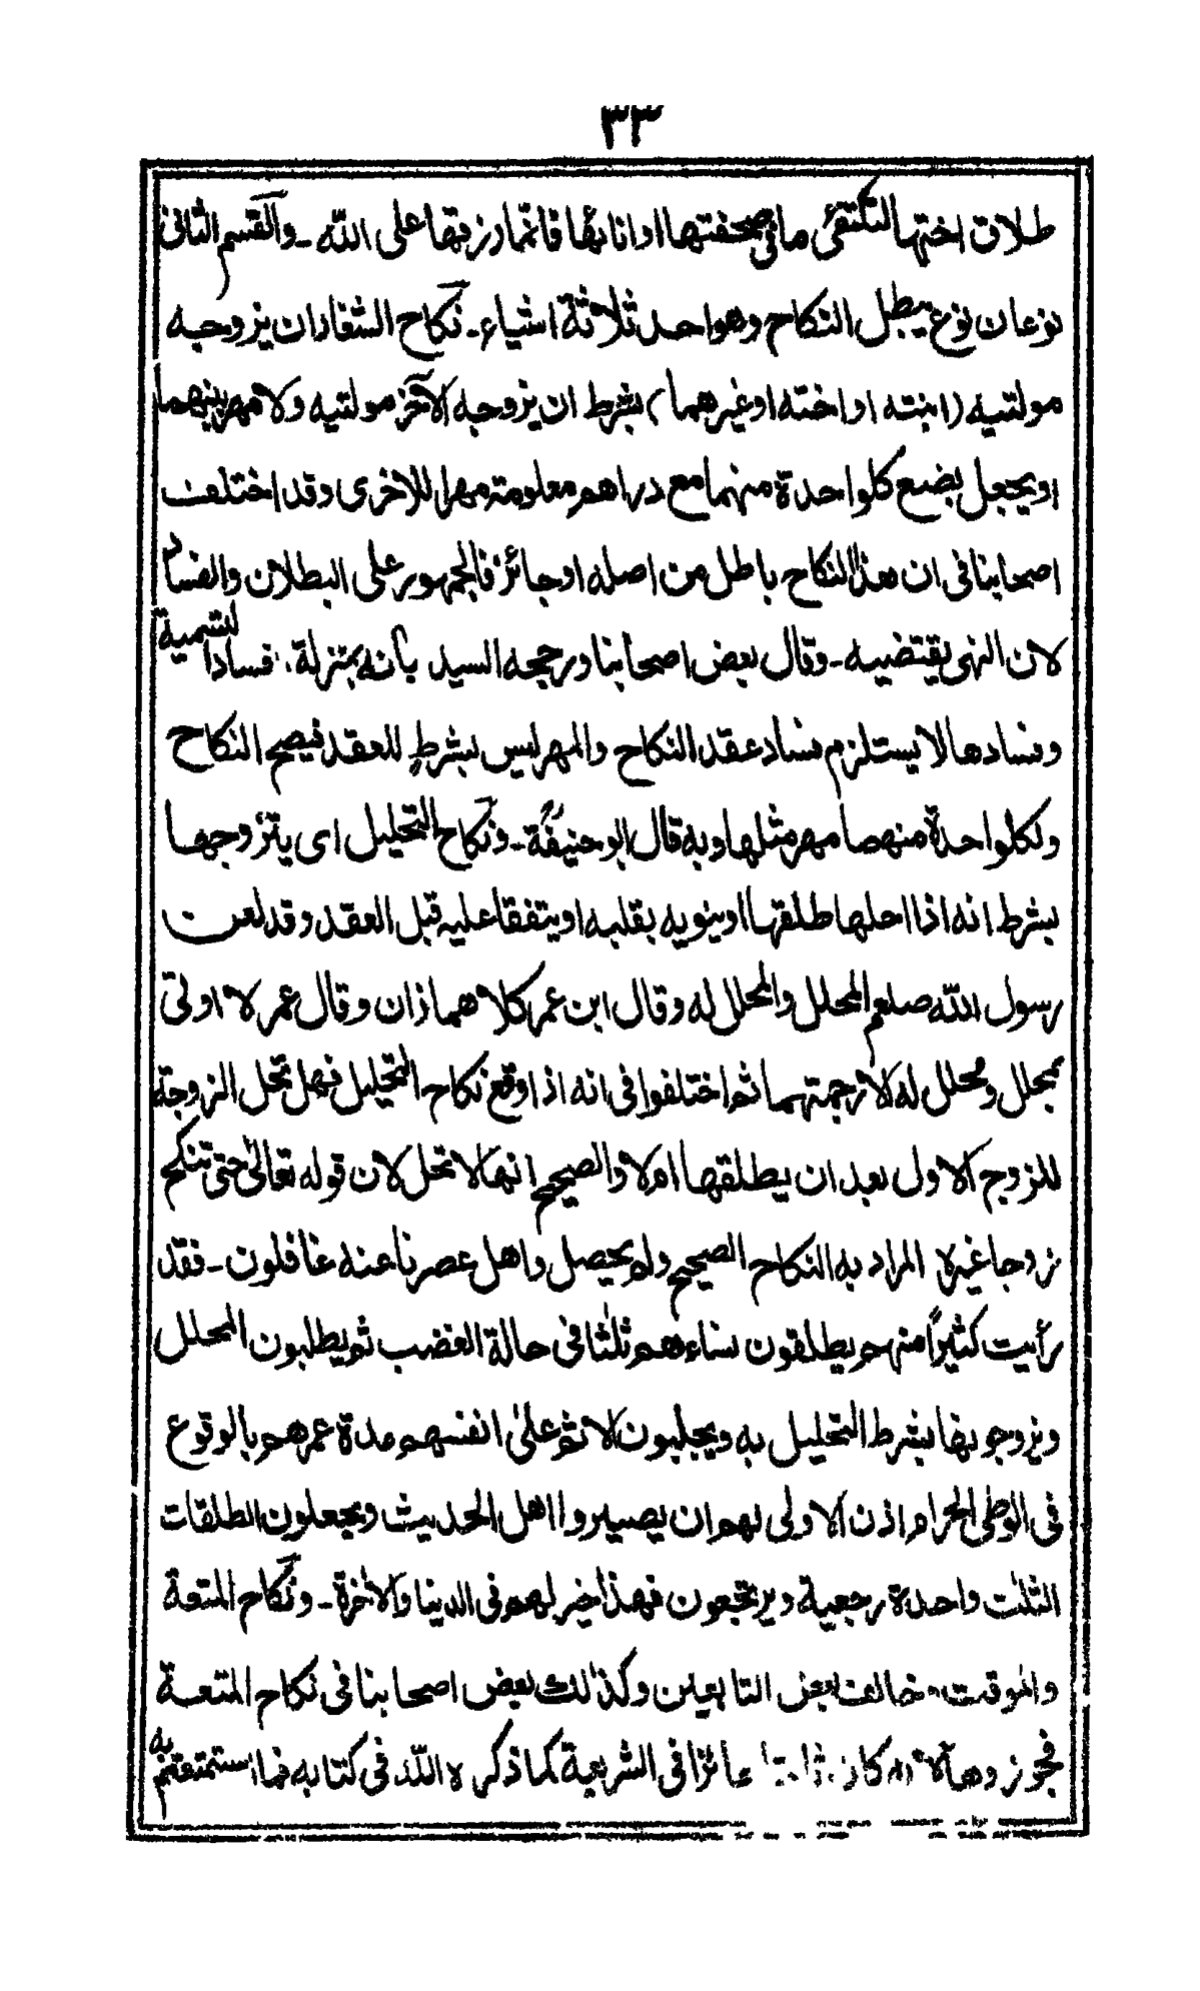 ٣٣
طلاق اختها لتكتفئ ما فى صحفتها او انائها فانما رزقها على الله ـ والقسم الثانى
نوعان نوع يبطل النكاح وهو احد ثلاثة اشياء ـ نكاح الشغار ان يزوجه
موليته (ابنته او اخته او غيرهما) بشرط ان يزوجه الآخر موليته ولا مهر بينهما
او يجعل بضع كلواحدة منهما مع دراهم معلومة مهرا للاخرى وقد اختلف
اصحابنا فى ان هذا النكاح باطل من اصله او جائز فالجمهور على البطلان والفساد
لان النهى يقتضيه ـ وقال بعض اصحابنا ورجحه السيد بأنه بمنزلة فساد التسمية
وفسادها لا يستلزم فساد عقد النكاح والمهر ليس بشرط للعقد فيصح النكاح
ولكلواحدة منهما مهر مثلها وبه قال ابو حنيفة ـ ونكاح التحليل اى يتزوجها
بشرط انه اذا احلها طلقها او ينويه بقلبه او يتفقا عليه قبل العقد وقد لعن
رسول الله صلعم المحلل والمحلل له وقال ابن عمر كلاهما زان وقال عمر لا اوتى
بمحلل ومحلل له الا رجمتهما ثم اختلفوا فى انه اذا وقع نكاح التحليل فهل تحل الزوجة
للزوج الاول بعد ان يطلقها ام لا والصحيح انها لا تحل لان قوله تعالى حتى تنكح
زوجا غيره المراد به النكاح الصحيح ولم يحصل واهل عصرنا عنه غافلون ـ فقد
رأيت كثيرًا منهم يطلقون نساءهم ثلثا فى حالة الغضب ثم يطلبون المحلل
ويزوجونها بشرط التحليل به ويجلبون الاثم على انفسهم مدة عمرهم بالوقوع
فى الوطى الحرام اذن الاولى لهم ان يصيروا اهل الحديث ويجعلون الطلقات
الثلث واحدة رجعية ويرتجعون فهذا خير لهم فى الدينا والآخرة ـ ونكاح المتعة
والموقت وخالف بعض التابعين وكذلك بعض اصحابنا فى نكاح المتعة
فجوزوها لانه كان ثابتا جائزا فى الشريعة كما ذكره الله فى كتابه فما استمتعتم به